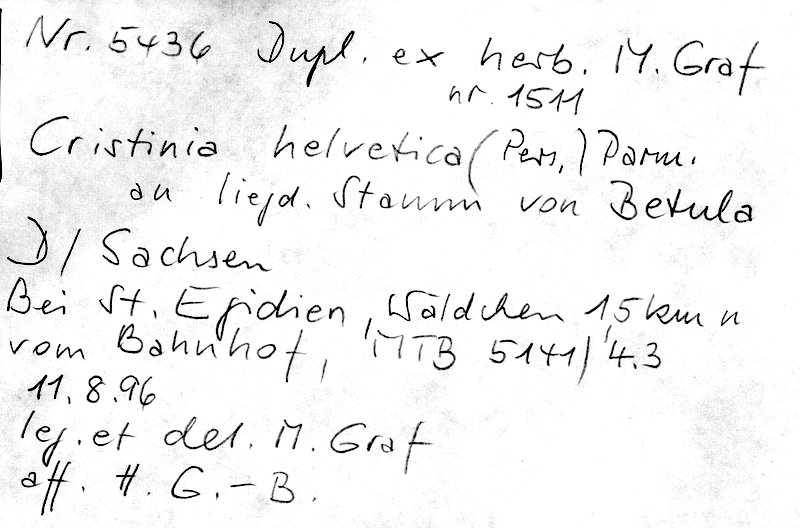 Nr. 5436 Dupl. ex herb. M. Graf
nr. 1511
Cristinia helvetica (Pers.) Parm.
an liegd. Stamm von Betula
D/ Sachsen
Bei St. Egidien, Wäldchen 1,5 km n
vom Bahnhof, MTB 5141/4.3
11.8.96
leg. et det. M. Graf
aff. H. G.-B.